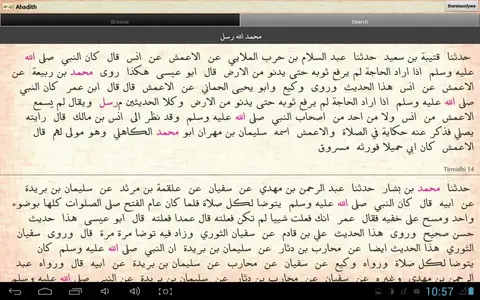 Ahadith
thereisonlywe
Browse
Search
محمد الله رسل
حدثنا قتيبة بن سعيد حدثنا عبد السلام بن حرب الملايي عن الاعمش عن انس قال كان النبي صلى الله
عليه وسلم اذا اراد الحاجة لم يرفع ثوبه حتى يدنو من الارض قال ابو عيسى هكذا روى محمد بن ربيعة عن
الاعمش عن انس هذا الحديث وروى وكيع وابو يحيى الحماني عن الاعمش قال قال ابن عمر كان النبي
صلى الله عليه وسلم اذا اراد الحاجة لم يرفع ثوبه حتى يدنو من الارض وكلا الحديثين مرسل ويقال لم يسمع
الاعمش من انس ولا من احد من اصحاب النبي صلى الله عليه وسلم وقد نظر الى انس بن مالك قال رايته
يصلي فذكر عنه حكاية في الصلاة والاعمش اسمه سليمان بن مهران ابو محمد الكاهلي وهو مولى لهم قال
الاعمش كان ابي حميلا فورثه مسروق
Tirmidhi 14
حدثنا محمد بن بشار حدثنا عبد الرحمن بن مهدي عن سفيان عن علقمة بن مرثد عن سليمان بن بريدة
عن ابيه قال كان النبي صلى الله عليه وسلم يتوضا لكل صلاة فلما كان عام الفتح صلى الصلوات كلها بوضوء
واحد ومسح على خفيه فقال عمر انك فعلت شيييا لم تكن فعلته قال عمدا فعلته قال ابو عيسى هذا حديث
حسن صحيح وروى هذا الحديث علي بن قادم عن سفيان الثوري وزاد فيه توضا مرة مرة قال وروى سفيان
الثوري هذا الحديث ايضا عن محارب بن دثار عن سليمان بن بريدة ان النبي صلى الله عليه وسلم كان
يتوضا لكل صلاة ورواه وكيع عن سفيان عن محارب عن سليمان بن بريدة عن ابيه قال ورواه عبد
الرحمن بن مهدي وغيره عن سفيان عن محارب بن دثار عن سليمان بن بريدة عن النبي صلى الله عليه وسلم
10:57